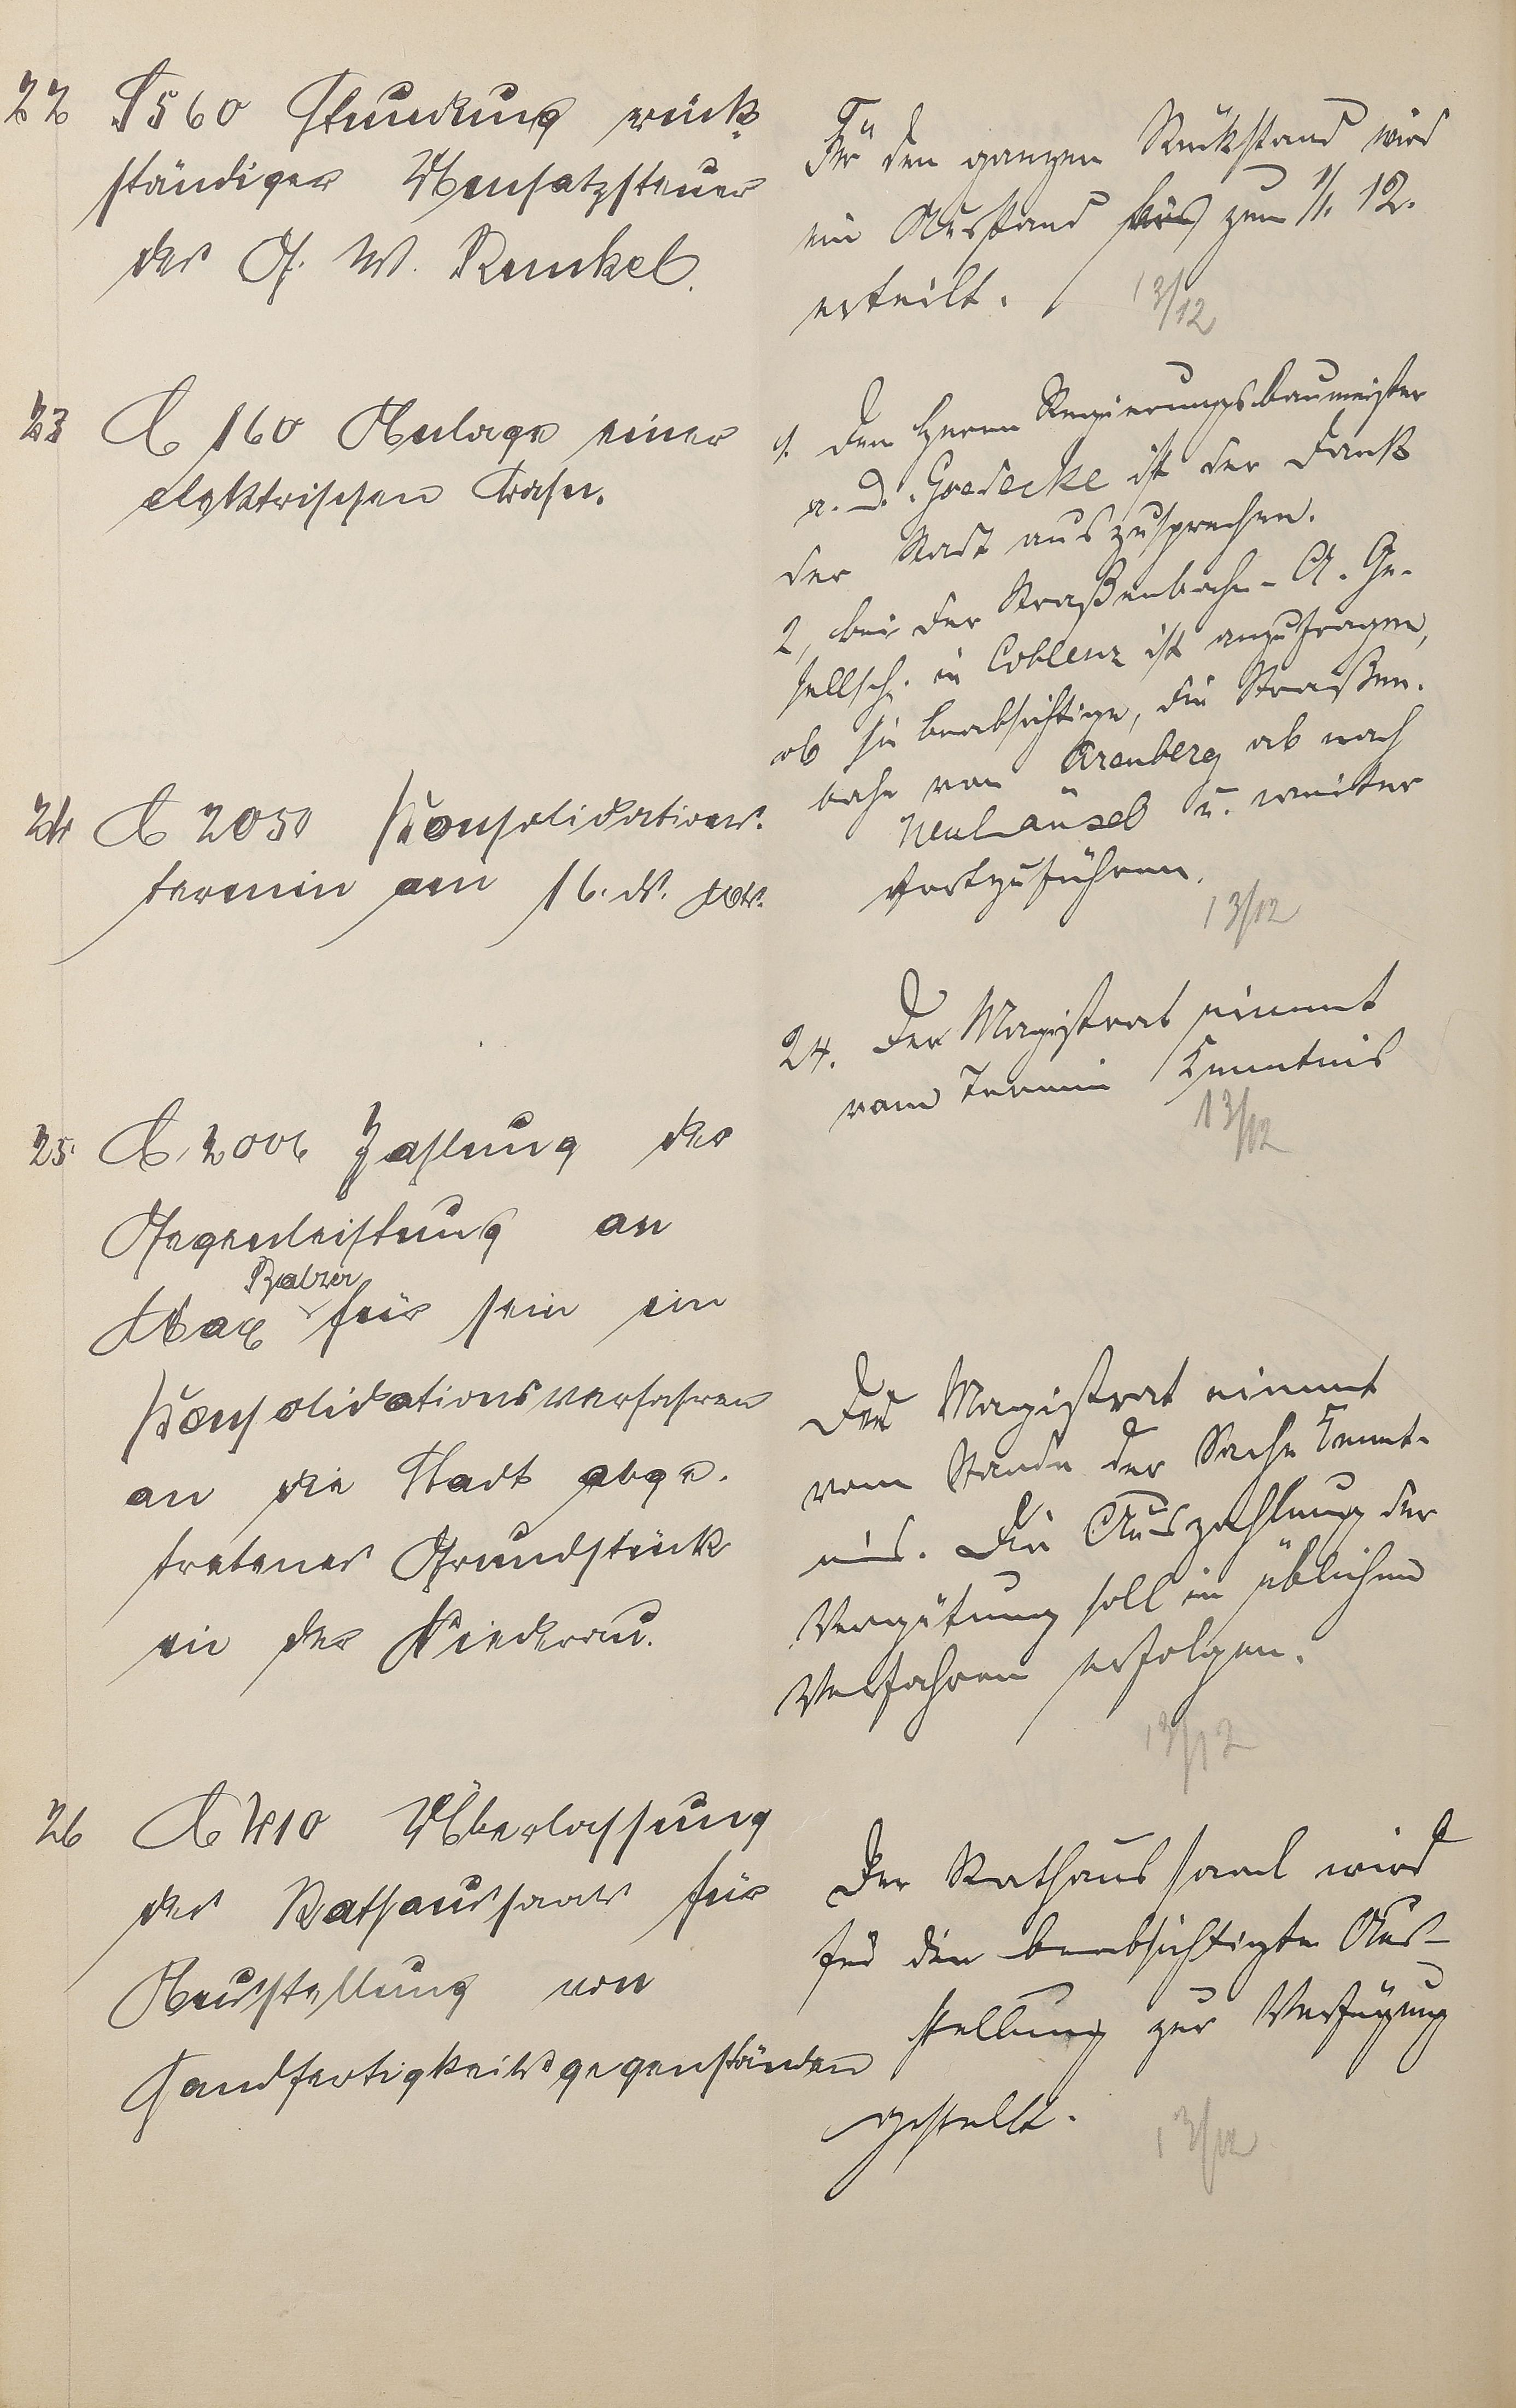 22 S 560 Stundung rück-
ständiger Umsatzsteuer
der G. W. Runkel.
Für den ganzen Rückstand wird
ein Ausstand bis zum 1/. 12.
erteilt.
13/12
23 A 160 Anlage einer
elektrischen Bahn.
1. Dem Herrn Regierungsbaumeister
a. D. Goedecke ist der Dank
der Stadt auszusprechen.
2, bei der Straßenbahn-A. Ge-
sellsch. in Coblenz ist anzufragen,
ob sie beabsichtige, die Straßen-
bahn von Arenberg ab nach
Neuhäusel u. weiter
fortzuführen.
13/12
24 A 2050 Konsolidations-
termin am 16. ds. Mts.
24. Der Magistrat nimmt
vom Termin Kenntnis
13/12
25 A 2006 Zahlung der
Gegenleistung an
Balzer
Max für sein im
Konsolidationsverfahren
an die Stadt abge-
tretenes Grundstück
in der Niederau.
Der Magistrat nimmt
vom Stande der Sache Kennt-
nis. Die Auszahlung der
Vergütung soll im üblichen
Verfahren erfolgen.
13/12
26 A 410 Überlassung
des Rathaussaals für
Ausstellung von
Handfertigkeitsgegenständen
Der Rathaussaal wird
für die beabsichtigte Aus-
stellung zur Verfügung
gestellt.
13/12